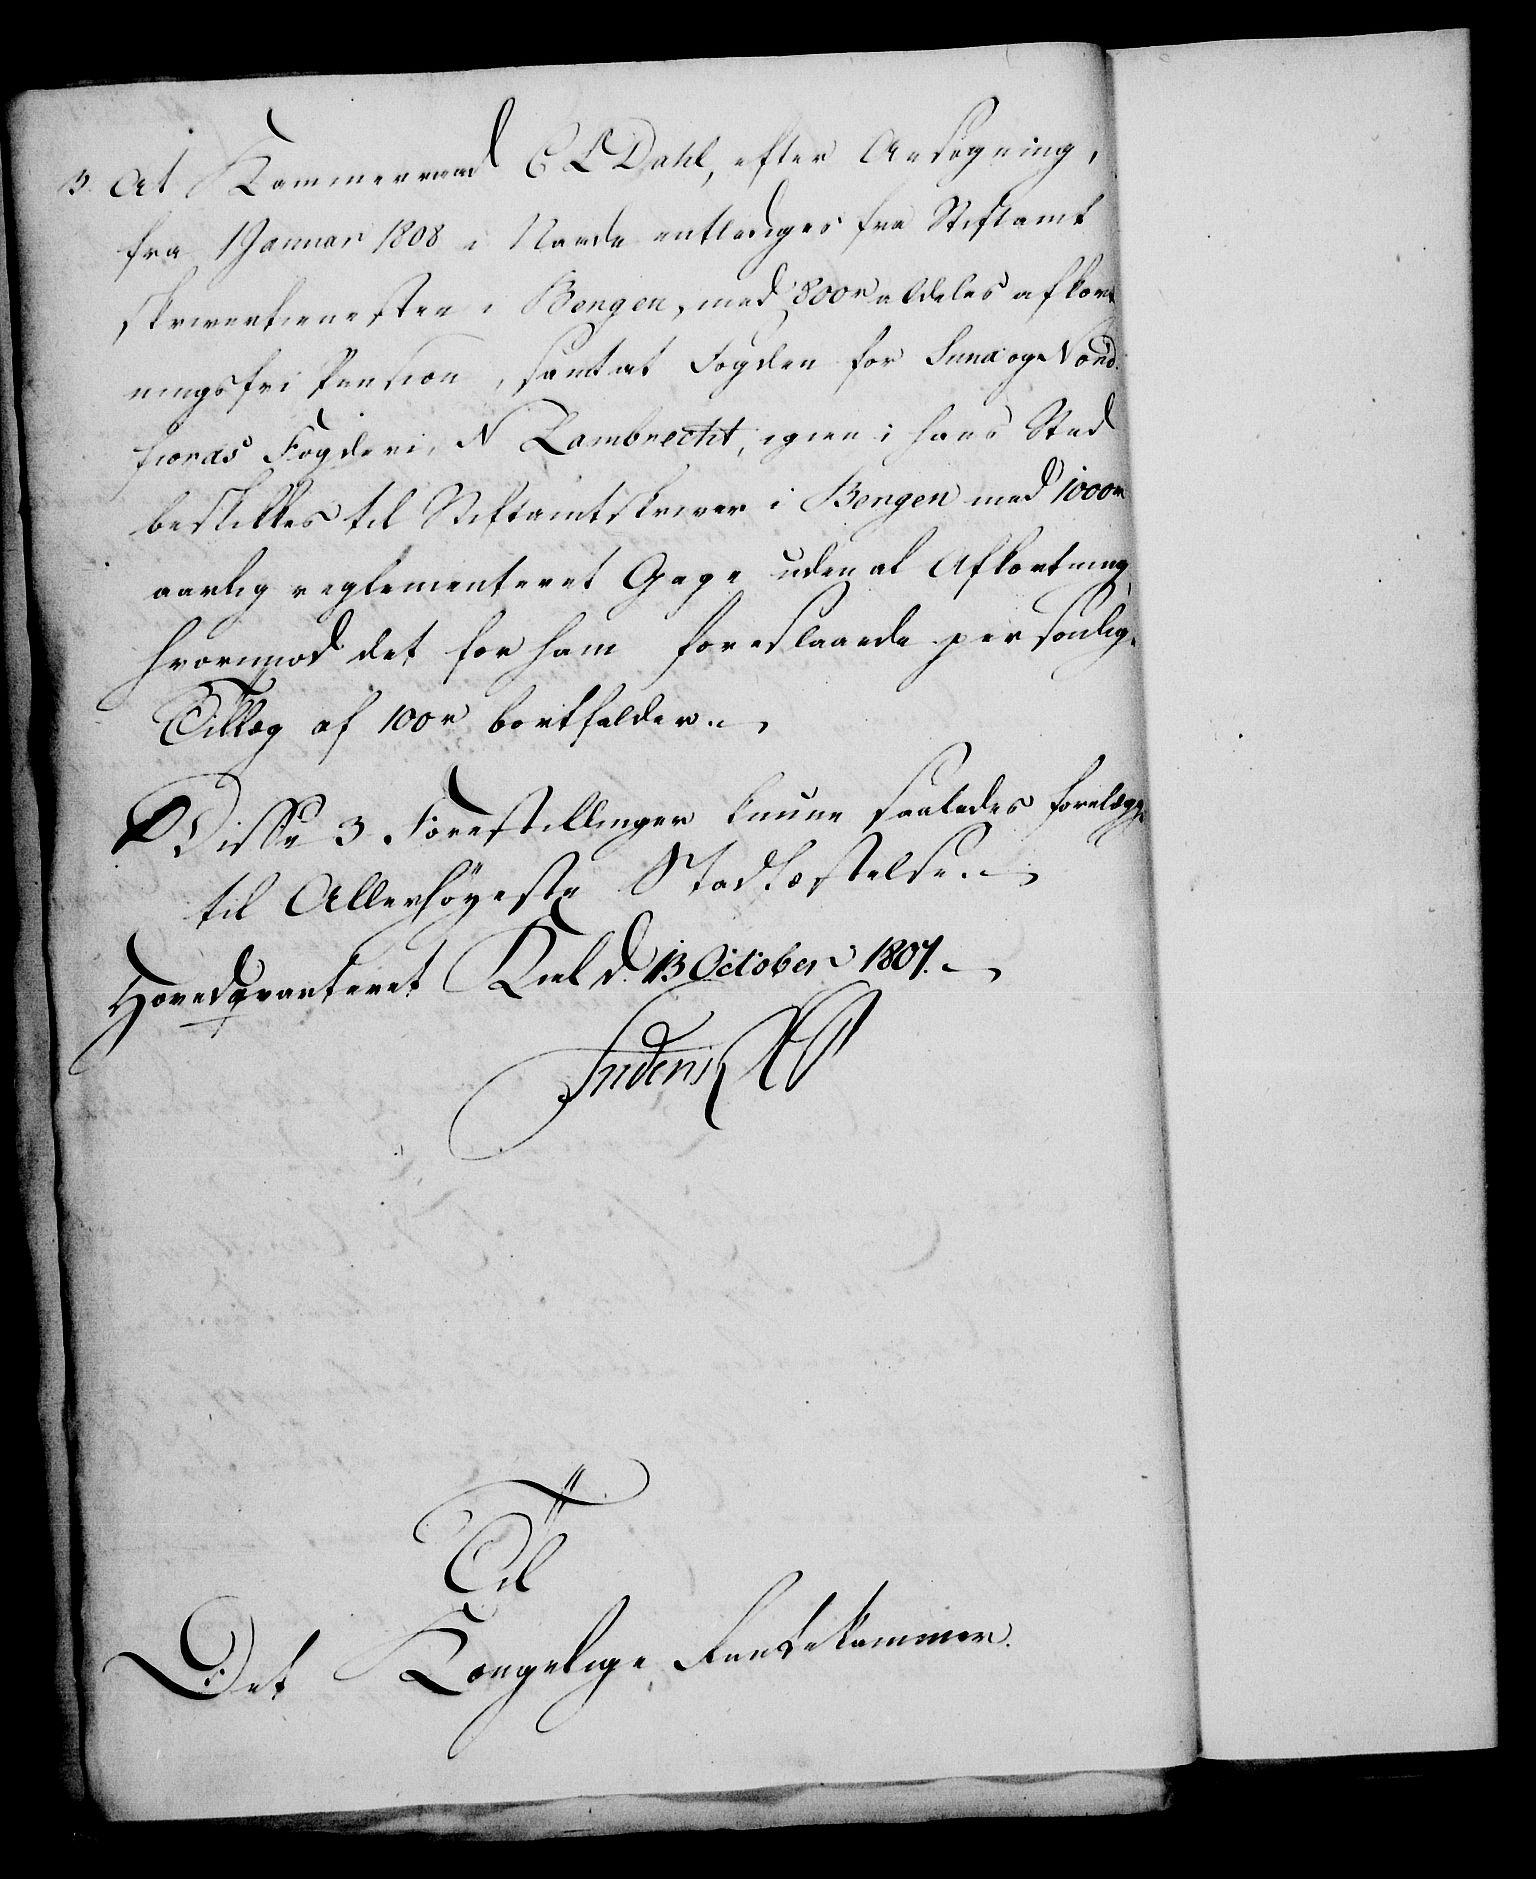 3. At Kammerraad C L Dahl, efter Ansøgning,
fra 1 Januar 1808 i Naade entlediges fra Stiftamt
skrivertienesten i Bergen, med 800 r aldeles afkort
ningsfri Pension, samt at Fogden for Sunn og Nord
fiords Fogderi, N Lambrecht, igien i hans Sted
beskikkes til Stiftamtskriver i Bergen med 1000 r
aarlig reglementeret Gage uden al Afkortning,
hvorimod det for ham foreslaaede personlige
Tillæg af 100 r bortfalder.
Disse 3 Forestillinger kunne saaledes forelægges
til Allerhøyeste Stadfæstelse.
Hovedqvarteret Kiel d. 13 October 1807.
Friderich
Til
Det Kongelige Rentekammer.